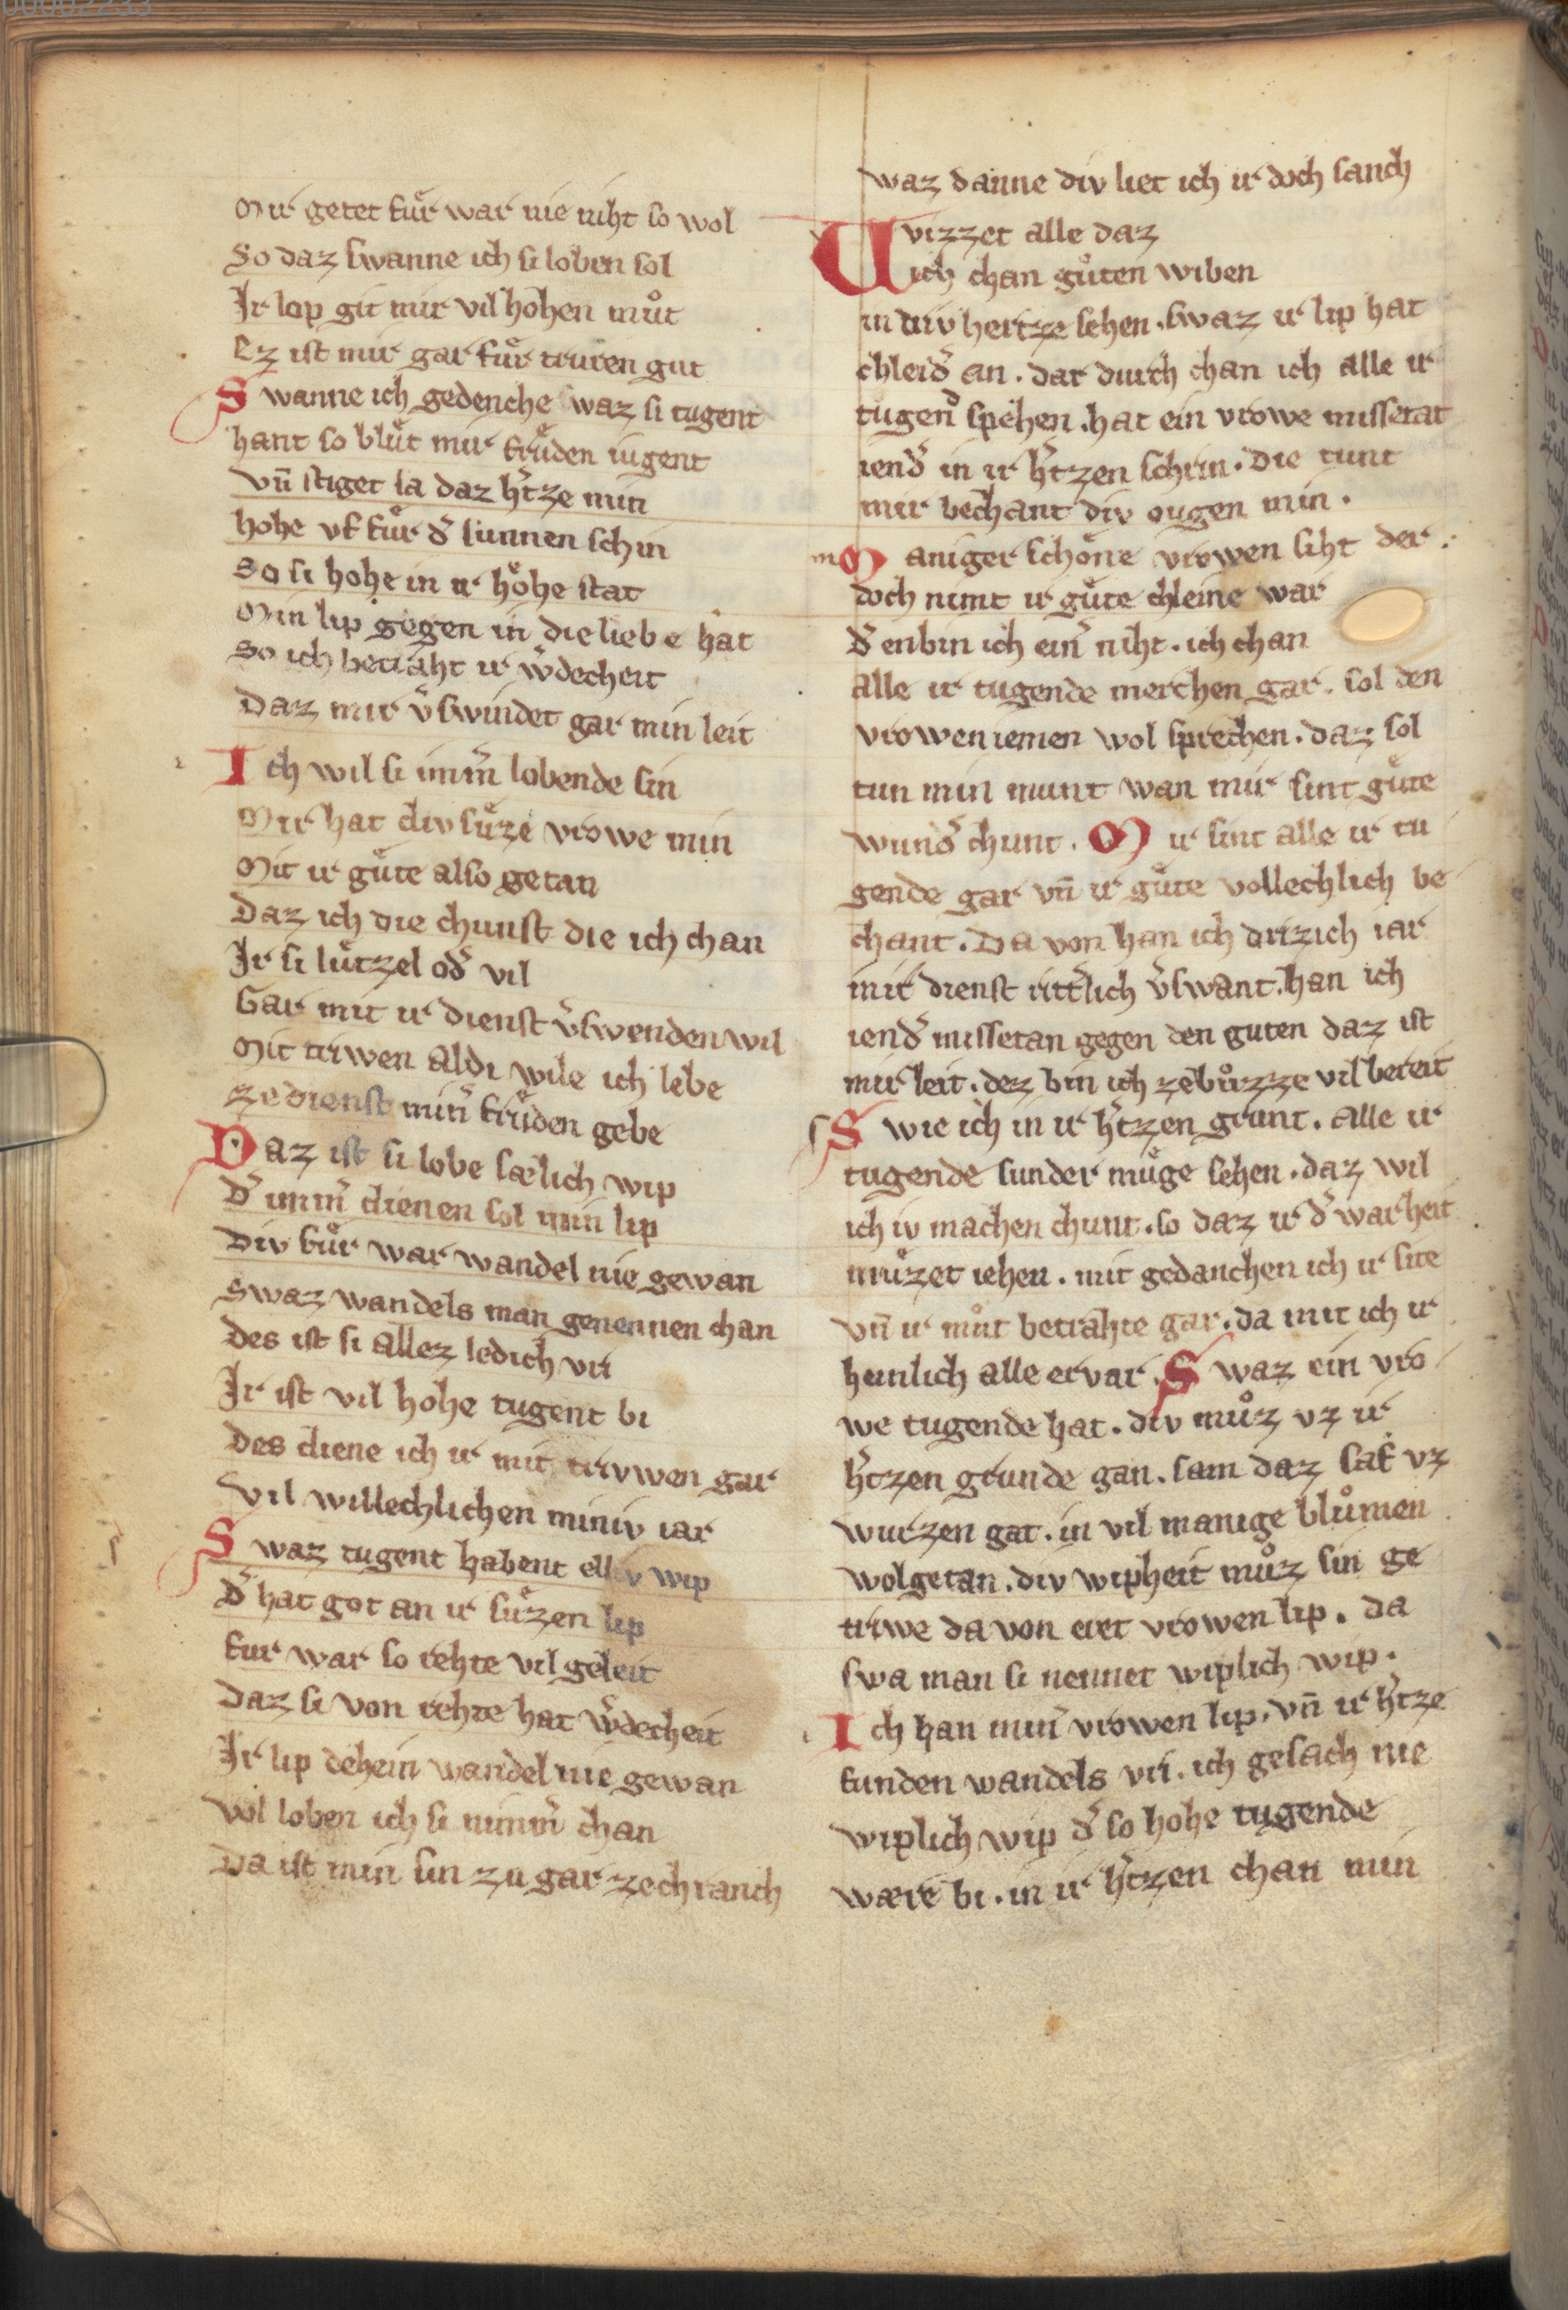 00002233
Mir getet fuͤr war nie niht so wol
So daz swanne ich si loben sol
Ir lop git mir vil hohen muͦt
Ez ist mir gar fuͤr truren gut
Swanne ich gedenche waz si tugent
hant so bluͤt mir fruͤden iugent
vn̄ stiget sa daz h̾tze min
hohe vf fuͤr d̾ sunnen schin
So si hohe in ir hoͤhe stat
Min lip gegen in die liebe hat
So ich betraht ir w̾decheit
Daz mir v̾swindet gar min leit
Ich wil si imm̾ lobende sin
Mir hat div suͤze vrowe min
Mit ir guͤte also getan
Daz ich die chunst die ich chan
Ir si luͤtzel od̾ vil
Gar mit ir dienst v̾swenden wil
Mit triwen aldi wile ich lebe
ze dienst min̾ fruͤden gebe
Daz ist si lobe sælich wip
D̾ imm̾ dienen sol min lip
Div fuͤr war wandel nie gewan
Swaz wandels man genennen chan
Des ist si allez ledich vri
Ir ist vil hohe tugent bi
Des diene ich ir mit trivwen gar
Vil willechlichen miniv iar
Swaz tugent habent elliv wip
D̾ hat got an ir suͤzen lip
fur war so rehte vil geleit
Daz si von rehte hat w̾decheit
Ir lip dehein wandel nie gewan
Vol loben ich si nimm̾ chan
Da ist min sin zu gar ze chranch
waz danne div liet ich ir doch sanch
Vvizzet alle daz
ich chan guͦten wiben
in div hertze sehen. swaz ir lip hat
chleid̾ an. dar durch chan ich alle ir
tugend̾ spehen. hat ein vrowe missetat
iend̾ in ir h̾tzen schrin. Die tunt
mir bechant div ougen min.
Maniger schoͤne vrowen siht der
doch nimt ir guͤte chleine war
d̾ enbin ich ein̾ niht. ich chan
alle ir tugende merchen gar. sol den
vrowen iemen wol sprechen. daz sol
tun min munt wan mir sint guͤte
wund̾ chunt. Mir sint alle ir tu
gende gar vn̄ ir guͤte vollechlich be
chant. Da von han ich drizich iar
mit dienst ritt̾lich v̾swant. han ich
iend̾ missetan gegen den guten daz ist
mir leit. dez bin ich ze buͦzze vil bereit
Swie ich in ir h̾tzen grunt. alle ir
tugende sunder muͤge sehen. daz wil
ich iv machen chunt. so daz ir d̾ warheit
muͤzet iehen. mit gedanchen ich ir site
vn̄ ir muͦt betrahte gar. da mit ich ir
heinlich alle ervar. Swaz ein vro
we tugende hat. div muͦz vz ir
h̾tzen grunde gan. sam daz saf vz
wurzen gat. in vil manige bluͦmen
wolgetan. div wipheit muͦz sin ge
triwe da von eret vrowen lip. da
swa man si nennet wiplich wip.
Ich han min̾ vrowen lip. vn̄ ir h̾tze
funden wandels vri. ich gesach nie
wiplich wip d̾ so hohe tugende
wære bi. in ir h̾tzen chan min